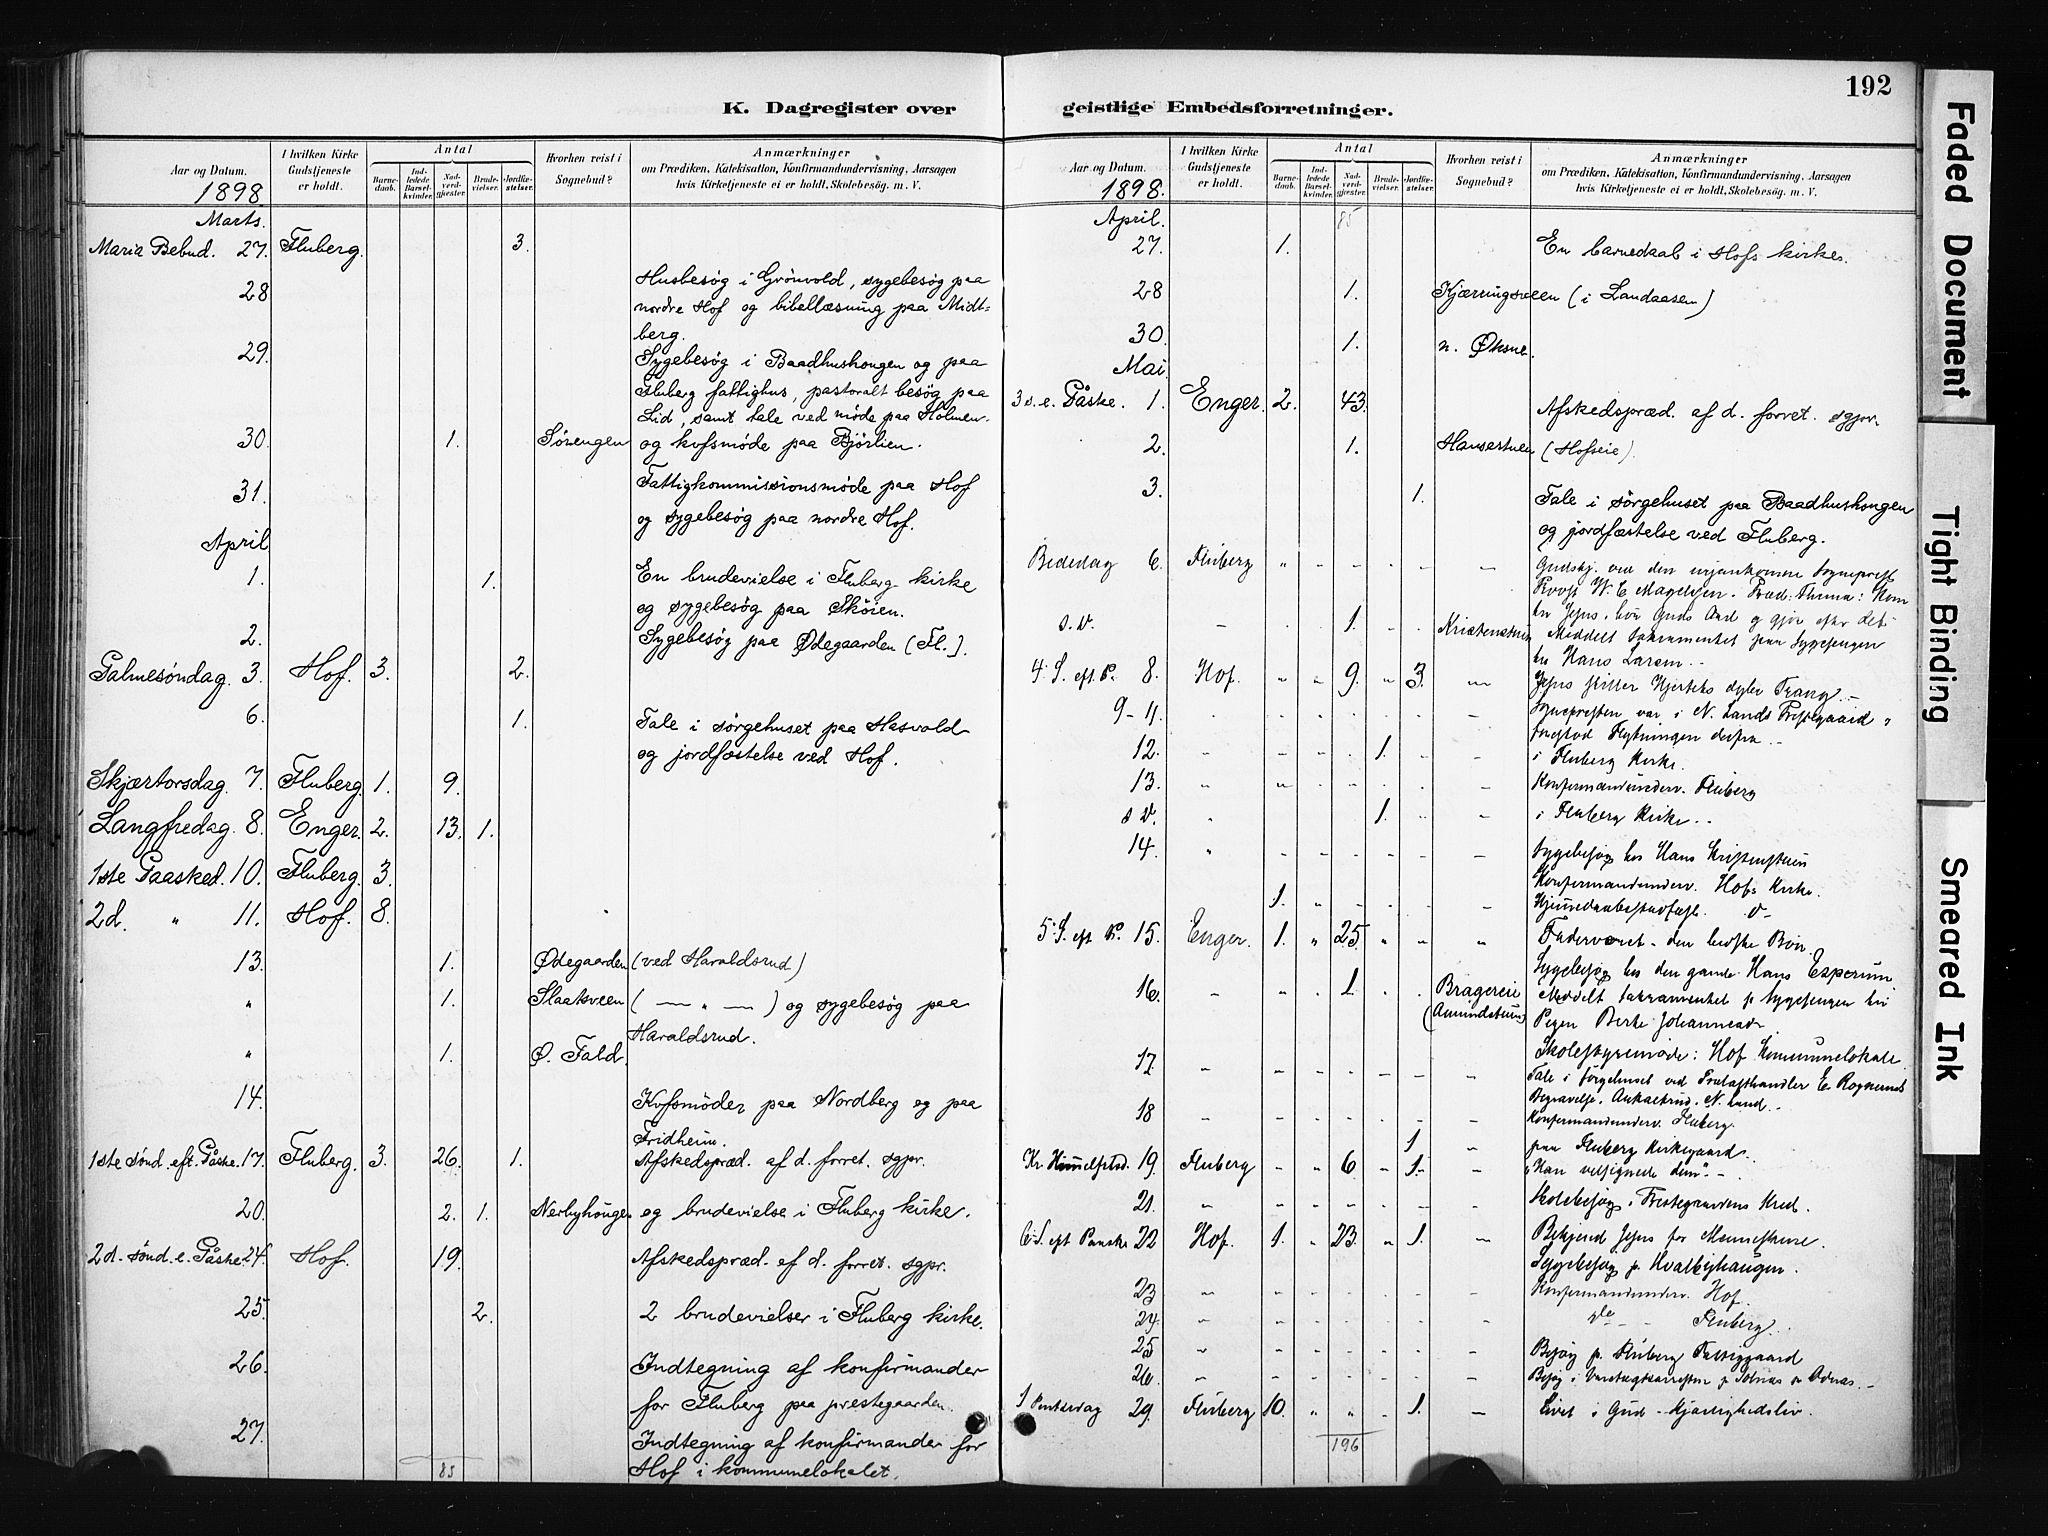 192
K. Dagregister over
geistlige Embedsforretninger.
Aar og Datum.
1898.
I hvilken Kirke Gudstjeneste er holdt.
Antal
Barne-daab.
Ind-ledede Barsel-kvinder.
Nad-verd-gjester.
Brude-vielser.
Jordfæ-stelser.
Hvorhen reist i Sognebud?
Anmærkninger
om Prædiken, Katekisation, Konfirmandundervisning, Aarsagen
hvis Kirketjeneste ei er holdt, Skolebesøg. m. V.
Marts.
Maria Bebud. 27. Fluberg. 3.
28 Husbesøg i Grönvold, sygebesøg paa
nordre Hof og bibellæsning paa Midt-
berg.
29. Sygebesøg i Baadhushongen og paa
Fluberg fattighus, pastoralt besøg paa
Lid, samt tale ved møde paa Holmen.
30. 1. Sörengen og kvfsmøde paa Bjørlien.
31. Fattigkommissionsmøde paa Hof
og sygebesøg paa nordre Hof.
April
1. 1. En brudevielse i Fluberg kirke
og sygebesøg paa Sköien.
2. Sygebesøg paa Ødegaarden (Fl.).
Palmesöndag. 3. Hof. 3. 2.
6. 1. Tale i sörgehuset paa Hasvold
og jordfæstelse ved Hof.
Skjærtorsdag. 7. Fluberg. 1. 9.
Langfredag. 8. Enger. 2. 13. 1.
1ste Paasked. 10. Fluberg. 3.
2d. " 11. Hof. 8.
13. 1. Ødegaarden (ved Haraldsrud)
" 1. Slaatsveen ( — " — ) og sygebesøg paa
Haraldsrud.
" 1. Ø. Fald.
14. Kvfsmöder paa Nordberg og paa
Fridheim.
1ste sönd. eft. Påske. 17. Fluberg. 3. 26. 1. Afskedspræd. af d. forret. sgpr.
20. 2. 1. Nerbyhougen og brudevielse i Fluberg kirke.
2d. sönd. e. Påske. 24. Hof. 19. Afskedspræd. af d. forret. sgpr.
25. 2. 2 brudevielser i Fluberg kirke.
26. Indtegning af konfirmander
for Fluberg paa prestegaarden.
27. Indtegning af konfirmander for
Hof i kommunelokalet.
85
Aar og Datum.
1898.
I hvilken Kirke Gudstjeneste er holdt.
Antal
Barne-daab.
Ind-ledede Barsel-kvinder.
Nad-verd-gjester.
Brude-vielser.
Jordfæ-stelser.
Hvorhen reist i Sognebud?
Anmærkninger
om Prædiken, Katekisation, Konfirmandundervisning, Aarsagen
hvis Kirketjeneste ei er holdt, Skolebesøg. m. V.
April. 85
27. 1. En barnedaab i Hofs kirke.
28 1. Kjærringsveen (i Landaasen)
30. 1. n. Øksne.
Mai.
3 s. e. Påske. 1. Enger. 2. 43. Afskedspræd. af d. forret. sgpr.
2. 1. Hansestuen (Hofseie).
3. 1. Tale i sörgehuset paa Baadhushongen
og jordfæstelse ved Fluberg.
Bededag 6. Fluberg " Gudstj. ved den nyankomne Sogneprest
Provst W. C. Magelssen. Præd. Thema: Kom
til Jesus, hør Guds Ord og gjør efter det.
s. D. 1. Kristenstuen Meddelt Sakramentet paa Sygesengen
til Hans Larsen.
4. S. eft. P. 8. Hof. " " 9. " 3. Jesus stiller Hjertets dybe Trang.
9-11. Sognepresten var i N. Lands Prestegaard
forestod Flytningen derfra.
12. 1. i Fluberg Kirke.
13. Konfirmandunderv. Fluberg
s D. 1. i Fluberg Kirke.
14. Sygebesøg hos Hans Kristenstuen
Konfirmandunderv. Hofs Kirke.
1. Hjemmedaabsstadfæst. D-
5. S. eft P. 15. Enger. 1. " 25. " " " Fadervoret - den bedste Bøn.
Sygebesøg hos den gamle Hans
16. 1. Bragereie Meddelt Sakramentet p Sygesengen til
(Amundstuen) Pigen Berte Johannesdr
17. Skolestyremøde: Hof Kommunelokale
Tale i Sørgehuset ved Trelasthandler E.
18 Begravelse. N. Land.
Konfirmandunderv. Fluberg.
1 paa Fluberg Kirkegaard.
Kr Himmelfartsd. 19. Fluberg " " 6 " 1. "Han velsignede dem".
21. Skolebesøg i Prestegaardens Kred.
6. S. eft Paaske 22 Hof. 1. " 23. " 1. Bekjend Jesus for Menneskene.
Sygebesøg p. Hvalbyhaugen.
23 Konfirmandunderv. Hof.
24. do Fluberg.
25 Besøg p. Fluberg Fattiggaard
26. Besøg i p Odnæs.
1 Pintsedag 29. Fluberg 10. " " 1. Livet i Gud - Kjærlighedsliv.
196
Faded Document
Tight Binding
Smeared Ink